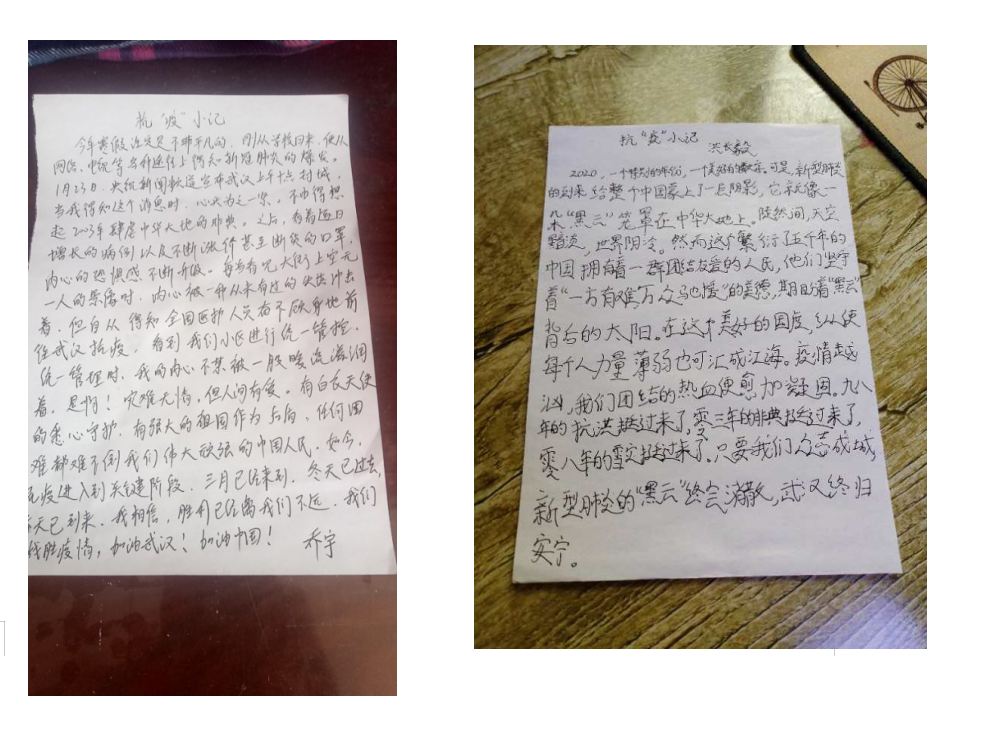 抗“疫”小记
今年寒假注定是不非平凡的，刚从学校回来，便从
网络、电视等各种途径上得知新冠肺炎的爆发。
1月23日，央视新闻频道宣布武汉上午十点封城，
当我得知这个消息时，心头为之一紧，不由得想
起2003年肆虐中华大地的非典。之后，看着逐日
增长的病例以及不断涨价甚至断货的口罩，
内心的恐惧感不断升级。每当看见大街上空无
一人的景像时，内心被一种从未有过的失落冲击
着。但自从得知全国医护人员奋不顾身地前
往武汉抗疫，看到我们小区进行统一管控、
统一管理时，我的内心不禁被一股暖流滋润
着。是啊！灾难无情，但人间有爱。有白衣天使
的悉心守护，有强大的祖国作为后盾，任何困
难都难不倒我们伟大顽强的中国人民。如今，
抗疫进入到关键阶段，三月已经来到，冬天已过去，
春天已到来，我相信，胜利已经离我们不远，我们
战胜疫情，加油武汉！加油中国！ 乔宇
抗“疫”小记
洪长毅
2020，一个特别的年份，一个美好的数字。可是，新型肺炎
的到来给整个中国蒙上了一层阴影，它就像一
朵“黑云”笼罩在中华大地上。陡然间，天空
黯淡，世界阴冷。然而这个繁衍了五千年的
中国拥有着一群团结友爱的人民，他们坚守
着“一方有难，万众驰援”的美德，期盼着“黑云”
背后的太阳。在这个美好的国度，纵使
每个人力量薄弱也可汇成江海。疫情越
汹，我们团结的热血便愈加凝固。九八
年的抗洪挺过来了，零三年的非典挺过来了，
零八年的雪灾挺过来了。只要我们众志成城，
新型肺炎的“黑云”终会消散，武汉终归
安宁。